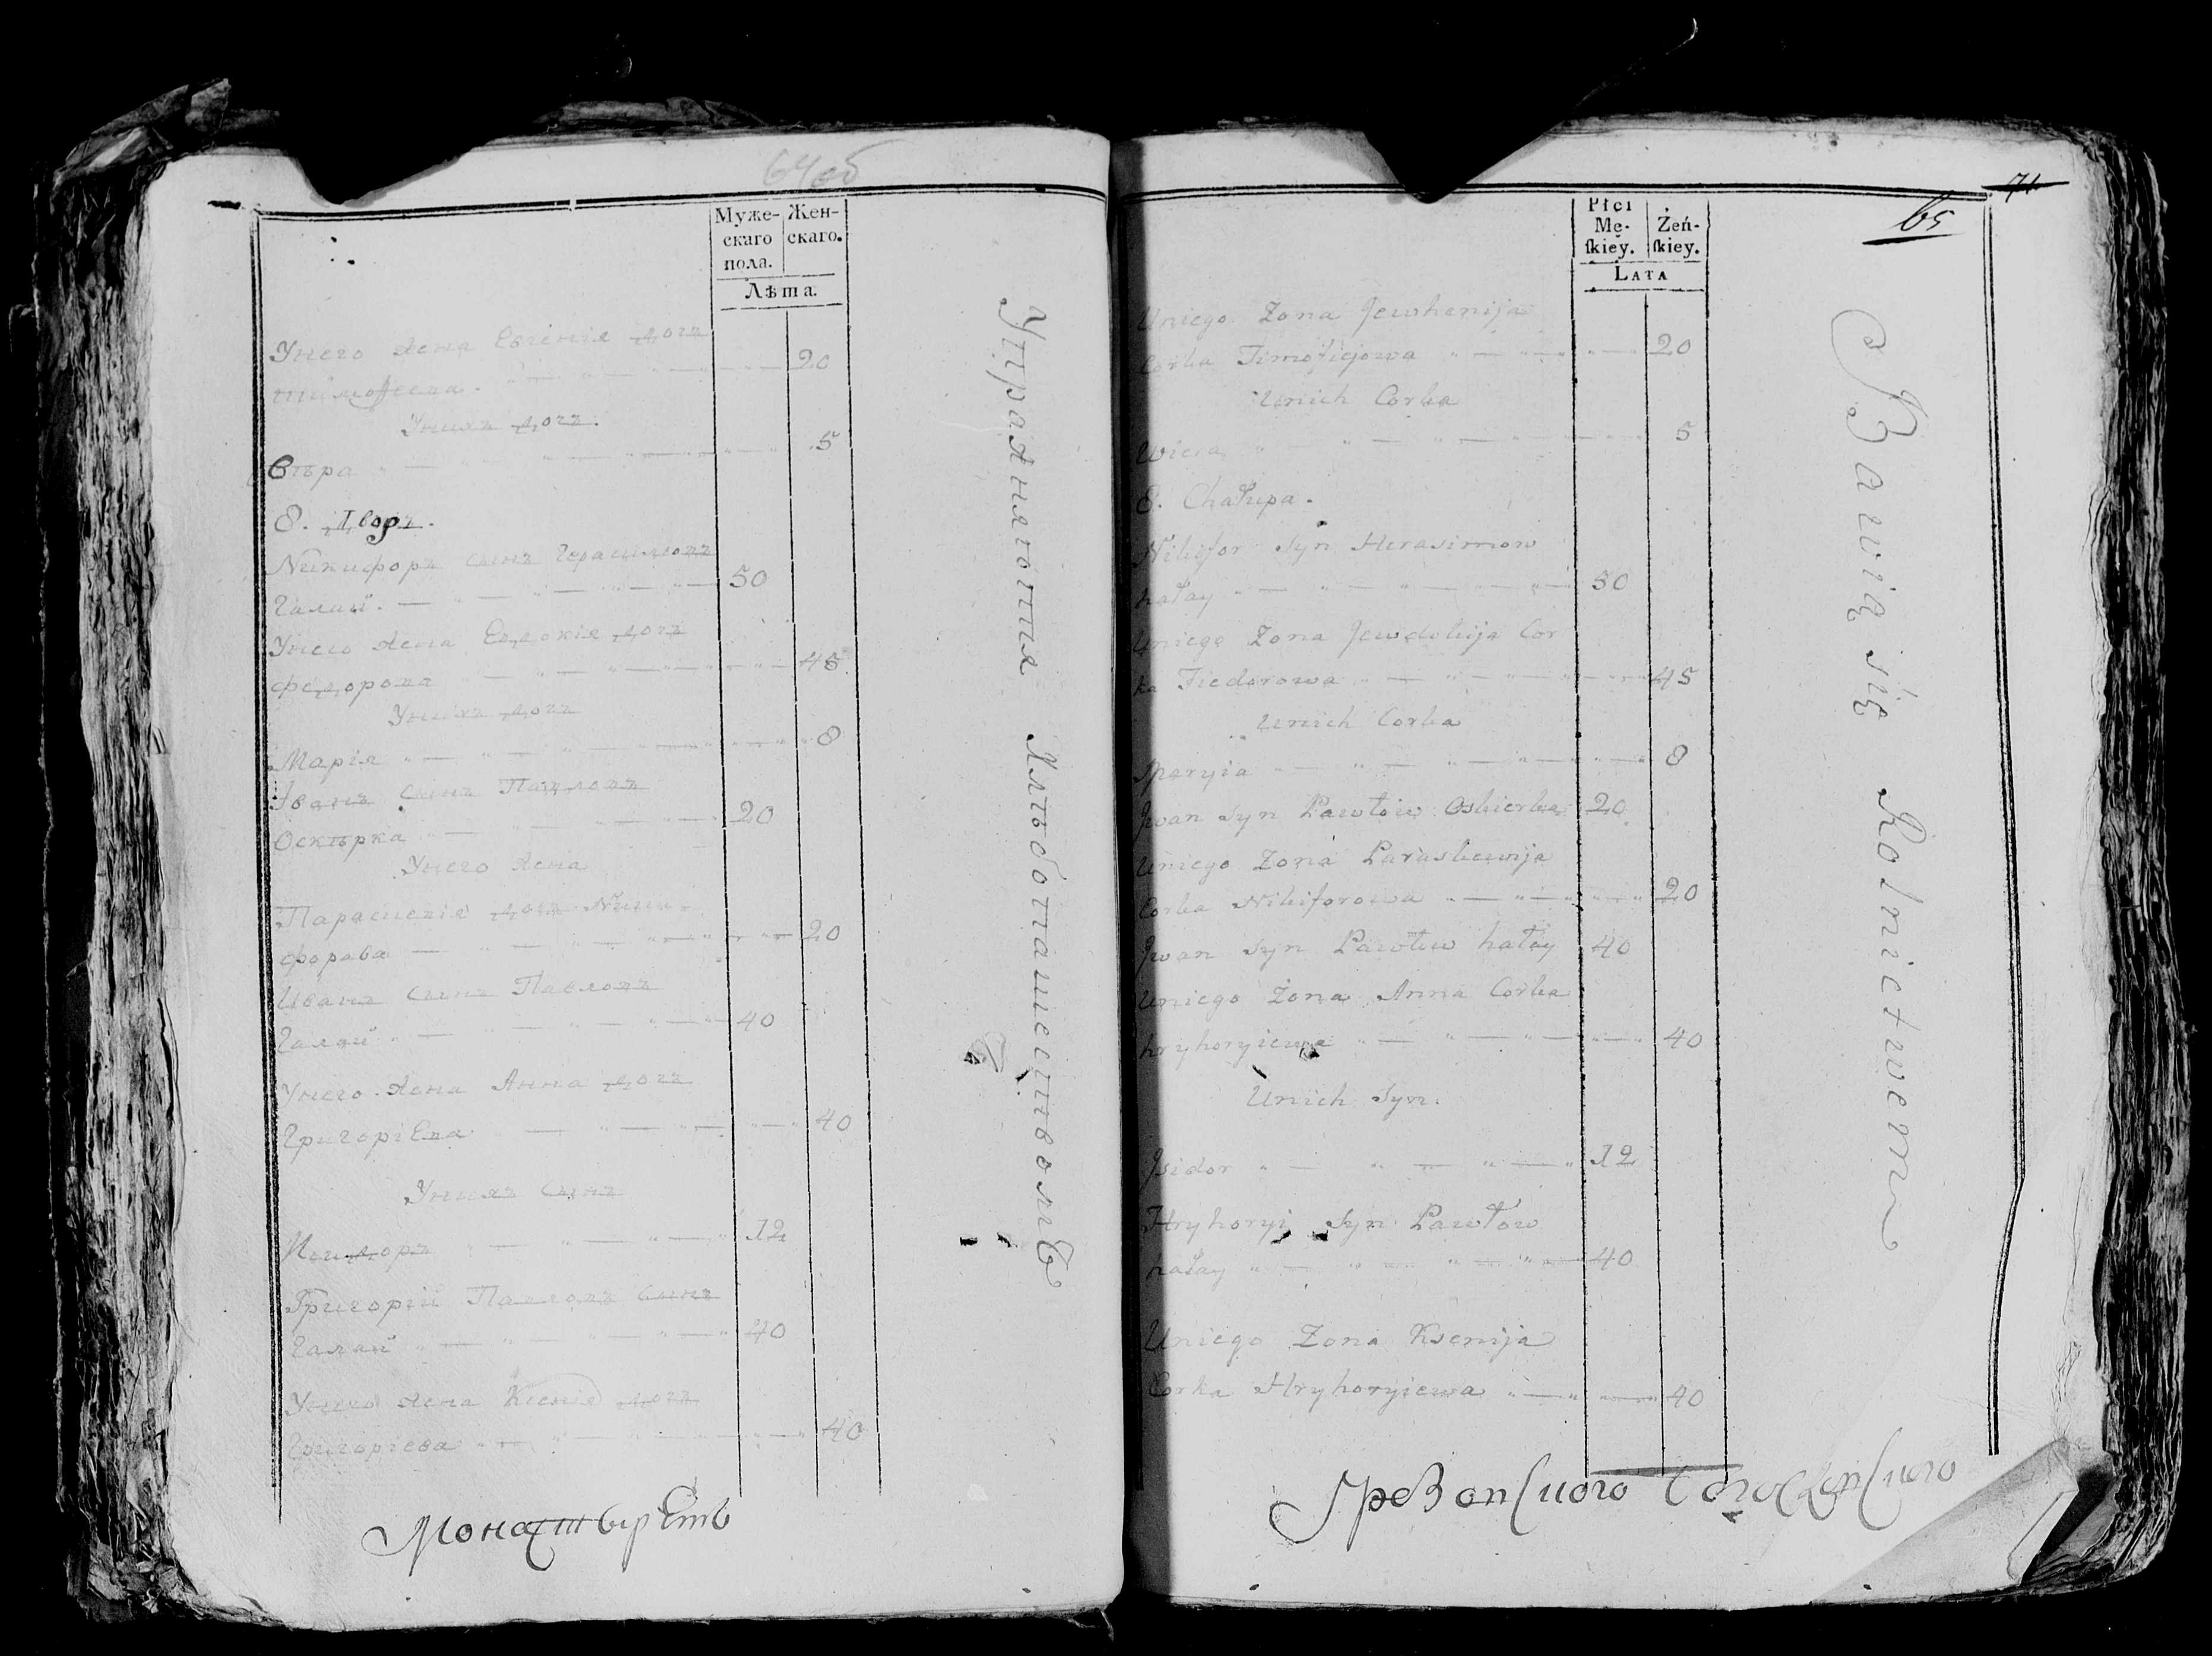 64об
Муже- Жен-
скаго скаго.
пола.
Лѣта.
Унего жена Евгенія дочь
тимофеева. 20
Унихъ дочь.
Вѣра 5
8. Дворъ.
Никифоръ сынъ Герасимовъ
Галай. 50
Унего жена Евдокія дочь
федорова 45
Унихъ дочь
Марія 8
Іванъ сынъ Павловъ
Оскѣрка 20
Унего жена
Параскевія дочь Ники-
форава 20
Иванъ сынъ Павловъ
Галай 40
Унего жена Анна дочь
Григоріева 40
Унихъ сынъ
Исидоръ 12
Григорій Павловъ сынъ
Галай 40
Унего жена Ксенія дочь
Григоріева 40
Упражняются Хлѣбопашествомъ
71
65
Płci
Mę- Żeń-
skiey. skiey.
Lata
Uniego Zona Jewhenija
Corka Timofiejowa 20
Unich Corka
Wiera 5
8. Chałupa.
Nikifor Syn Herasimow
hałay 50
Uniego Zona Jewdokija Cor
ka Fiedorowa 45
Unich Corka
Maryia 8
Jwan Syn Pawłow Oskierka 20
Uniego Zona Paraskewija
Corka Nikiforowa 20
Jwan Syn Pawłow hałay 40
Uniego Zona Anna Corka
hryhoryiewa 40
Unich Syn.
Jsidor 12
Hryhoryi Syn Pawłow
hałay 40
Uniego Zona Ksenija
Corka Hryhoryiewa 40
Bawią się Rolnictwem